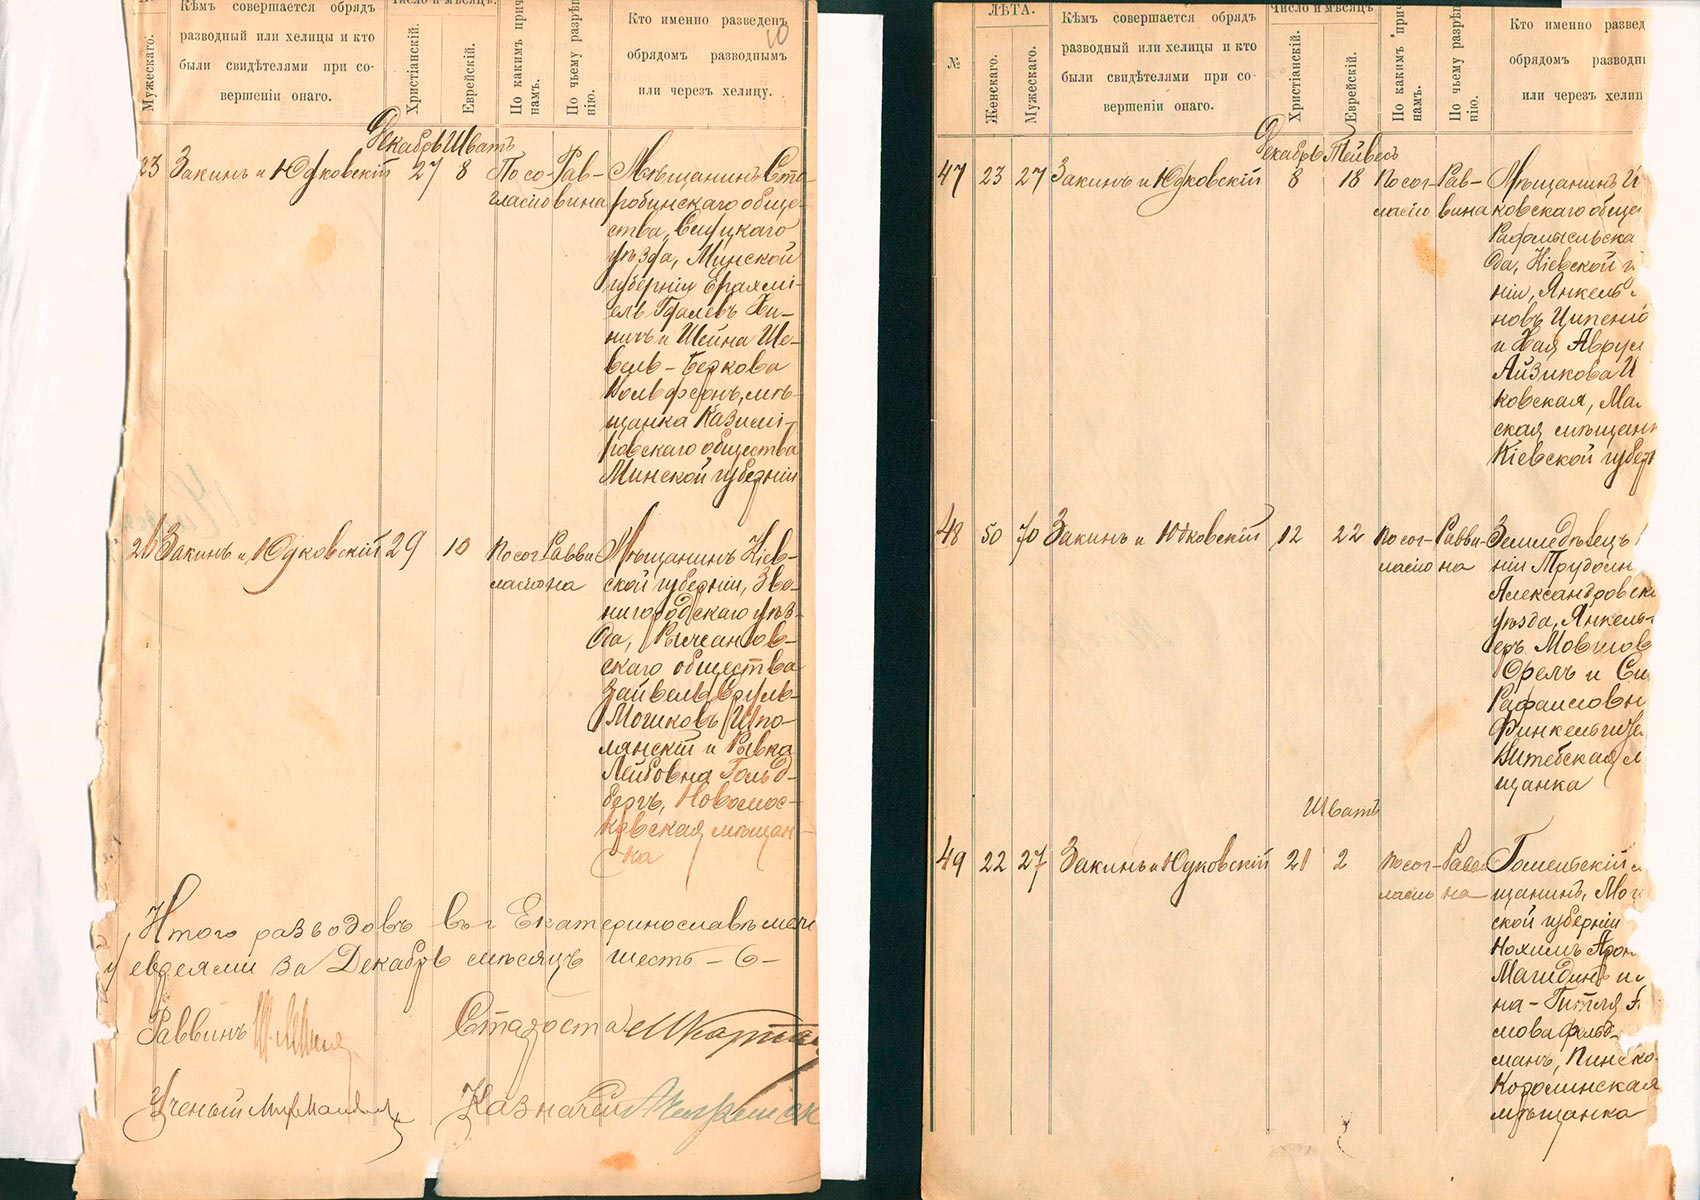 Мужескаго.
Кѣмъ совершается обрядъ
разводный или хелицы и кто
были свидѣтелями при со-
вершеніи онаго.
Число и мѣсяцъ.
Христіанскій.
Еврейскій.
По какимъ прич
намъ.
По чьему разрѣш
нію.
Кто именно разведенъ
обрядомъ разводнымъ
или черезъ хелицу.
10
Декабрь Шватъ
23 Закинъ и Юдковскій 27 8 По со- Рав- Мѣщанинъ Ста-
гласію вина робинскаго обще-
ства, Слуцкаго
уѣзда, Минской
губерніи Ерахмі-
елъ
и Шейна Ше-
вель-Беркова
мѣ-
щанка Казимі-
ровскаго общества
Минской губерніи
26 Закинъ и Юдковскій 29 10 По сог- Равви Мѣщанинъ Кіев-
ласію на ской губерніи, Зве-
нигородскаго уѣз-
да,
скаго общества
Зайвель Сруль-
Мошковъ Шпо-
лянскій и Рывка
Лейбовна Гольд-
бергъ, Новомос-
ковская мѣщан-
ка
Итого разводовъ въ г Екатеринославѣ меж
ду евреями за Декабрь мѣсяцъ шесть - 6 -
Раввинъ
Староста
Ученый
Казначей
№
ЛѢТА.
Женскаго.
Мужескаго.
Кѣмъ совершается обрядъ
разводный или хелицы и кто
были свидѣтелями при со-
вершеніи онаго.
Число и мѣсяцъ
Христіанскій.
Еврейскій.
По какимъ прич
намъ.
По чьему разрѣш
нію.
Кто именно развед
обрядомъ разводны
или черезъ хелиц
Декабрь Тейвесъ
47 23 27 Закинъ и Юдковскій 8 18 По сог- Рав- Мѣщанинъ И
ласію вина ковскаго обще
Радомысльска
да, Кіевской гу
ніи, Янкель
новъ Ципеню
и Хая Аврум
Айзикова И
ковская, Ма
ская мѣщан
Кіевской губер
48 50 70 Закинъ и Юдковскій 12 22 По сог- Равви- Земледѣлецъ
ласію на ніи Трудолю
Александровска
уѣзда, Янкель
еръ Мовшов
Орелъ и Си
Рафаиловн
Финкельш
Витебская м
щанка
Шватъ
49 22 27 Закинъ и Юдковскій 21 2 По сог- Равви Гомельскій м
ласію на щанинъ, Мог
ской губерніи
Нохимъ Арон
Магидинъ и
на-Гитля А
мова Фельд-
манъ, Пинско-
Каролинская
мѣщанка